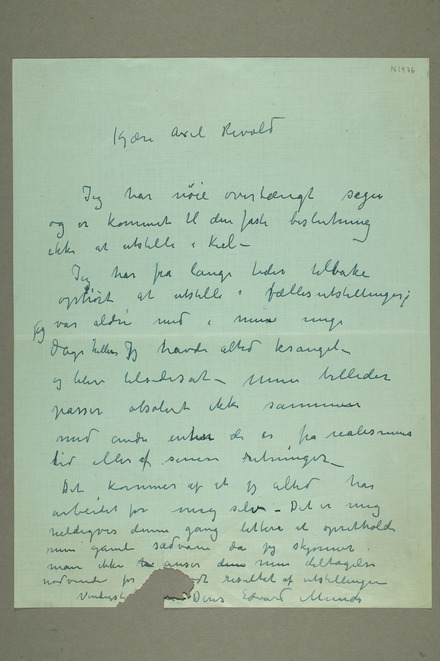 N 1976
Kjære Axel Revold
Jeg har nöie overlængt sagen
og er kommet til den faste beslutning
ikke at utstille i Kiel –
Jeg har fra lange tider tilbake
ophört at utstille i fællesutstillinger;
jeg var aldri med i mine unge
Dage heller. Jeg havde altid krangel –
og blev tilsidesat – mine billeder
passer absolut ikke sammen
med andre enten de er fra realismens
tid eller af senere retninger –
Det kommer af at jeg altid har
arbeidet for mig selv – Det er mig
heldigvis denne gang lettere at opretholde
min gamle sædvane da jeg skjønner
man ikke anser min deltagelse
nødvendig for resultat af utstillingen
Deres Edvard Munch